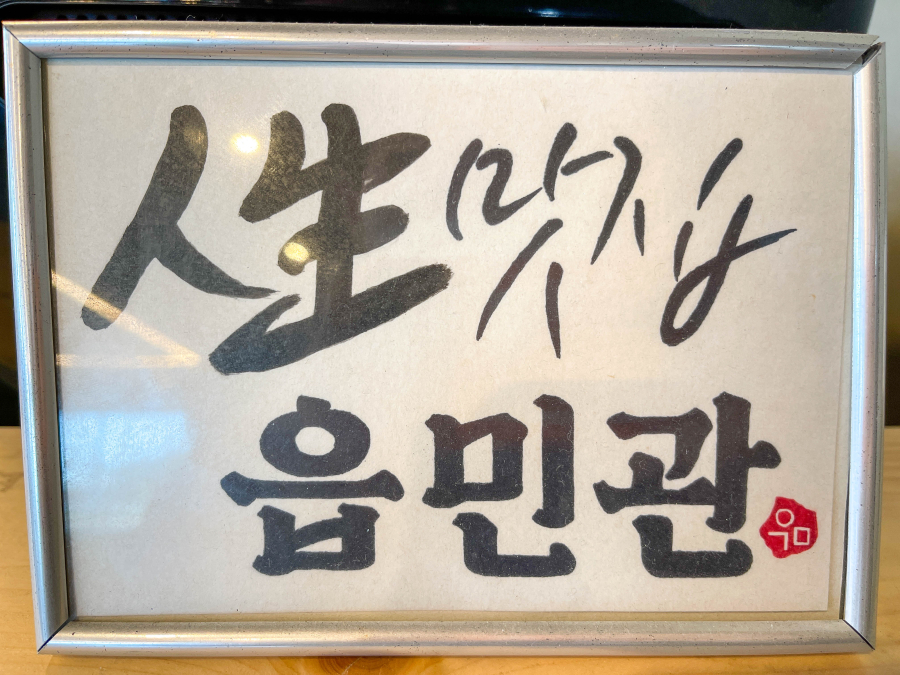 人生맛집
읍민관